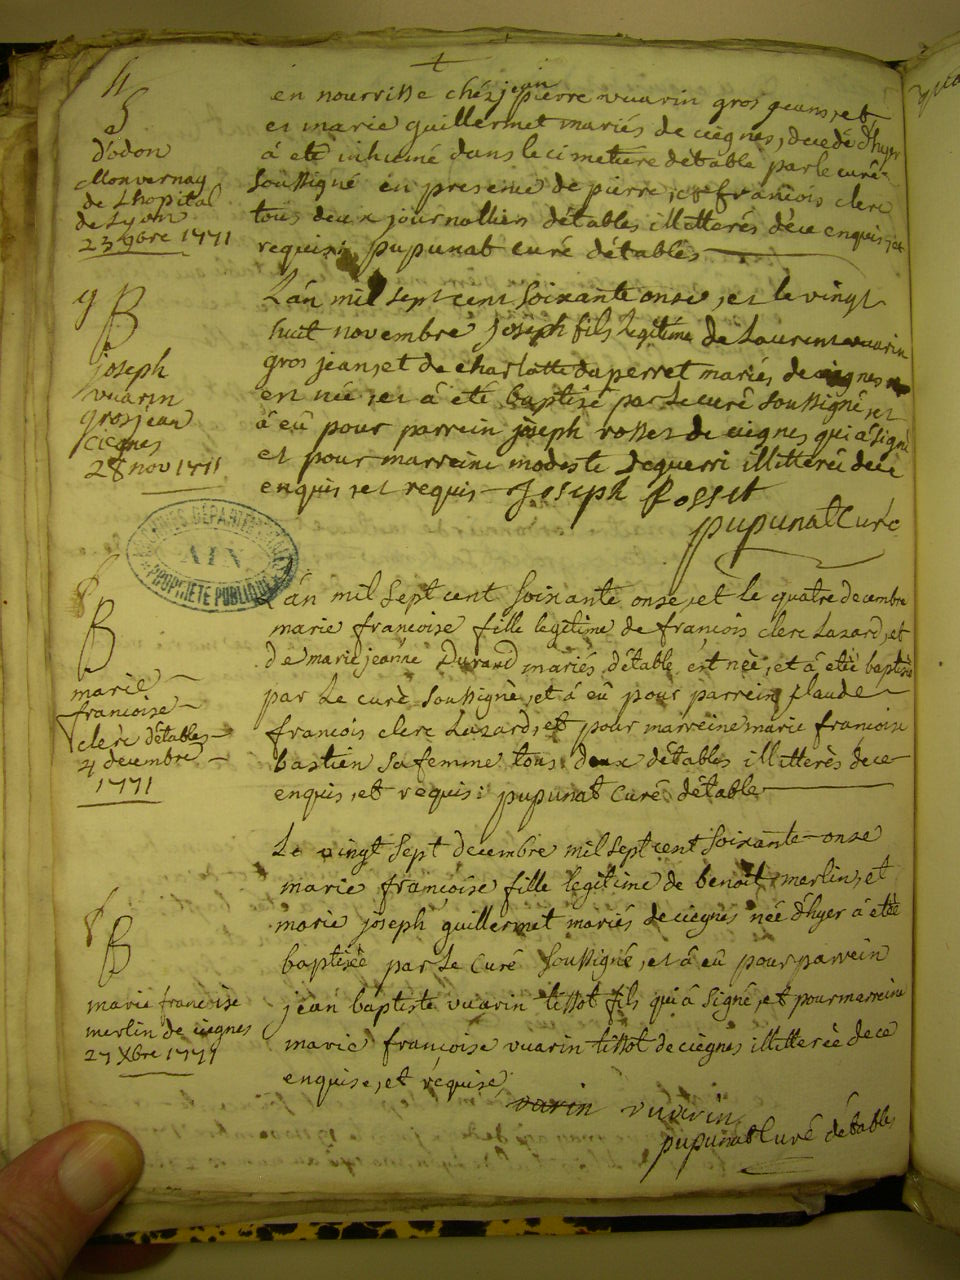 en nourrisse chéz jean pierre vuarin gros jeans, et
et marie guillermet mariés de ciegnes, decedé d'hyer
à été inhumé dans le cimetiere détable par le curé
soussigné en presence de pierre, et francois clerc
tous deux journalliers détables illitterés de ce enquis, et
requis: pupunat curé détables
S
d'odon
Monvernay
de Lhopital
de Lyon
23 9bre 1771
L'an mil sept cent soixante onze, et le vingt
huit novembre joseph fils legitime de Laurent vuarin
gros jeans, et de charlotte duperret mariés de ciegnes
est née, et à été baptisé par le curé soussigné, et
à eû pour parrein joseph rosset de ciegnes qui à signé
et pour marreine modeste deguerri illitterée de ce
enquis, et requis Joseph Rosset
pupunat Curé
B
joseph
vuarin
grosjean
ciegnes
28 nov 1771
ARCHIVES DÉPARTEMENTALES
AIN
PROPRIÉTÉ PUBLIQUE
L'an mil sept cent soixante onze, et le quatre decembre
marie francoise fille legitime de francois clerc Lazard, et
de marie jeanne Durand mariés détable est née, et à etée baptisée
par le curé soussigné, et à eû pour parrein claude
francois clerc Lazard, et pour marreine marie francoise
bastien sa femme tous deux détables illitterés de ce
enquis, et requis: pupunat curé détable
B
marie
francoise
clerc détables
4 decembre
1771
Le vingt sept decembre mil sept cent soixante onze
marie françoise fille legitime de benoit merlin, et
marie joseph guillermet mariés de ciegnes née d'hyer à etée
baptisée par le curé soussigné, et à eû pour parrein
jean baptiste vuarin tissot fils qui à signé, et pour marreine
marie françoise vuarin tissot de ciegnes illitterée de ce
enquise, et requise,
varin vuarin
pupunat curé détables
B
marie francoise
merlin de ciegnes
27 Xbre 1771